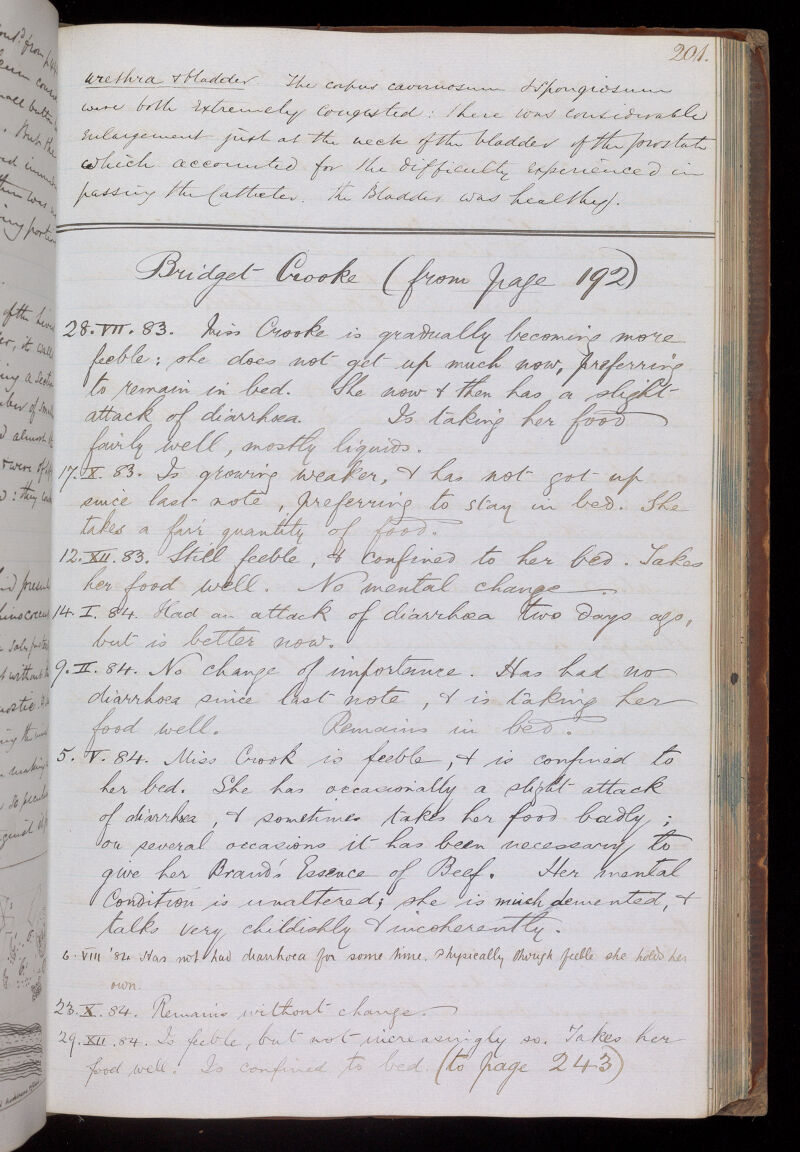 201.
urethra & bladder. The corpus cavernosum & spongiosum
were both extremely congested: there was considerable
enlargement just at the neck of the bladder of the prostate
which accounted for the difficulty experienced in
passing the Catheter. The Bladder was healthy.
Bridget Crooke (from page 192)
28.VII.83. Miss Crooke is gradually becoming more
feeble; she does not get up much now, preferring
to remain in bed. She now & then has a slight
attack of diarrhœa. Is taking her food
fairly well, mostly liquids.
17.X.83. Is growing weaker, & has not got up
since last note, preferring to stay in bed. She
takes a fair quantity of food.
12.XII.83. Still feeble, & confined to her bed. Takes
her food well. No mental change
14.I.84. Had an attack of diarrhœa two days ago,
but is better now.
9.II.84. No change of importance. Has had no
diarrhœa since last note, & is taking her
food well. Remains in bed.
5.V.84. Miss Crook is feeble, & is confined to
her bed. She has occasionally a slight attack
of diarrhœa, & sometimes takes her food badly;
on several occasions it has been necessary to
give her Brand's Essence of Beef. Her mental
Condition is unaltered; she is much demented, &
talks very childishly & incoherently.
6.VIII '84 Has not had diarrhœa for some time. Physically though feeble she holds her
own.
23.X.84. Remains without change.
29.XII.84. Is feeble, but not increasingly so. Takes her
food well. Is confined to bed. (to page 243)